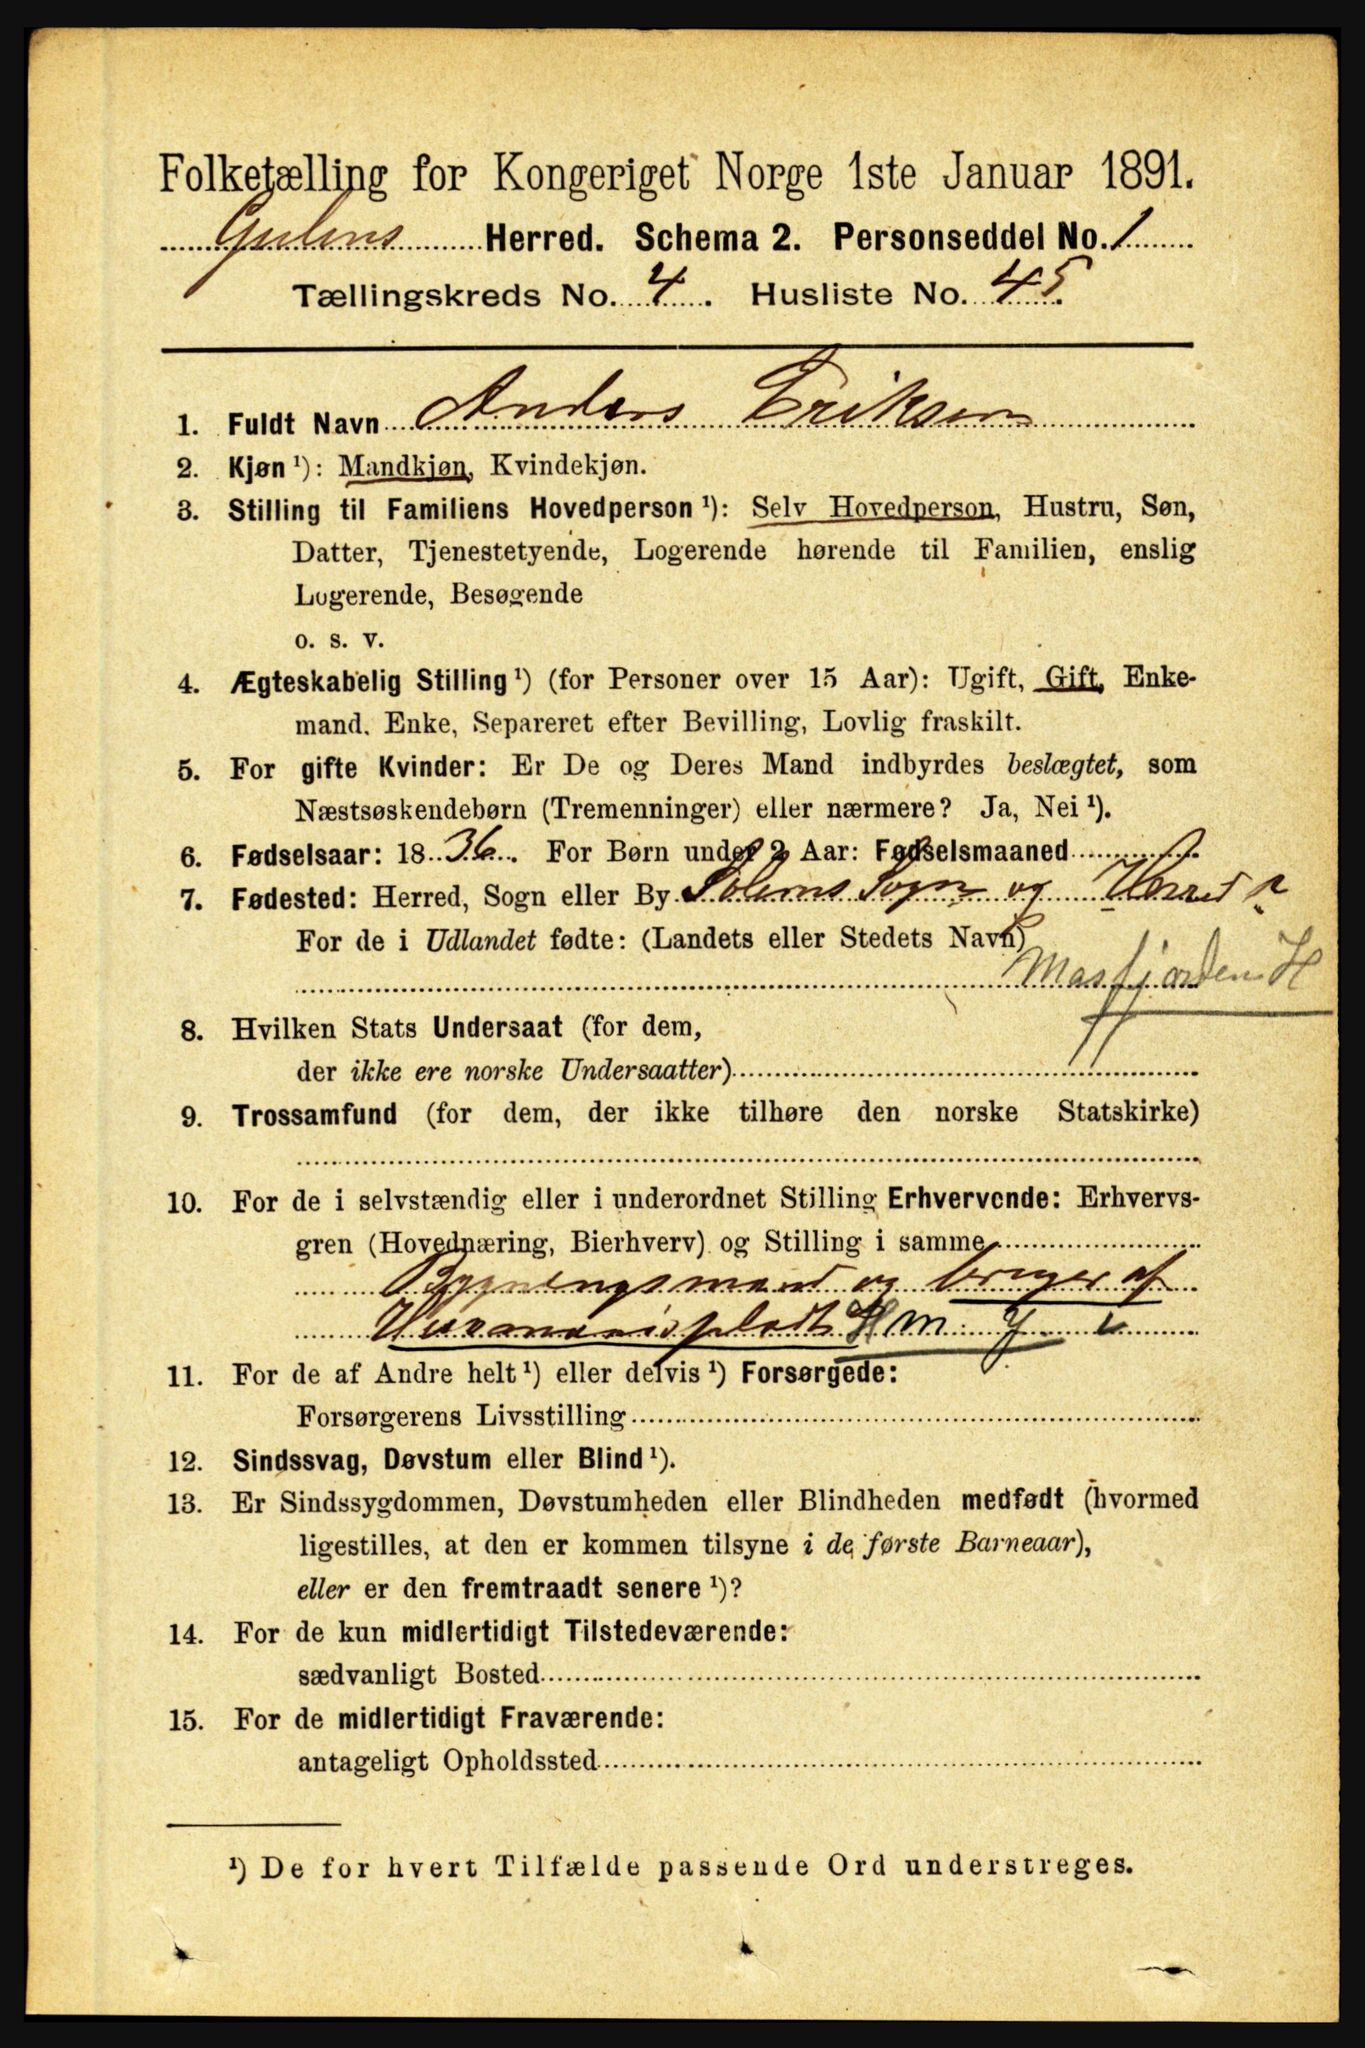 Folketælling for Kongeriget Norge 1ste Januar 1891.
Gulens Herred. Schema 2. Personseddel No. 1
Tællingskreds No. 4. Husliste No. 45.
1. Fuldt Navn Anders Eriksen
2. Kjøn ¹): Mandkjøn, Kvindekjøn.
3. Stilling til Familiens Hovedperson ¹): Selv Hovedperson, Hustru, Søn,
Datter, Tjenestetyende, Logerende hørende til Familien, enslig
Logerende, Besøgende
o. s. v.
4. Ægteskabelig Stilling ¹) (for Personer over 15 Aar): Ugift, Gift, Enke-
mand, Enke, Separeret efter Bevilling, Lovlig fraskilt.
5. For gifte Kvinder: Er De og Deres Mand indbyrdes beslægtet, som
Næstsøskendebørn (Tremenninger) eller nærmere? Ja, Nei ¹).
6. Fødselsaar: 1836. For Børn under 2 Aar: Fødselsmaaned
7. Fødested: Herred, Sogn eller By Solems Sogn og Herred
For de i Udlandet fødte: (Landets eller Stedets Navn)
Masfjorden H
8. Hvilken Stats Undersaat (for dem,
der ikke ere norske Undersaatter)
9. Trossamfund (for dem, der ikke tilhøre den norske Statskirke)
10. For de i selvstændig eller i underordnet Stilling Erhvervende: Erhvervs-
gren (Hovednæring, Bierhverv) og Stilling i samme
Bygningsmand og bruger af
Huusmandsplads Hm
11. For de af Andre helt ¹) eller delvis ¹) Forsørgede:
Forsørgerens Livsstilling
12. Sindssvag, Døvstum eller Blind ¹).
13. Er Sindssygdommen, Døvstumheden eller Blindheden medfødt (hvormed
ligestilles, at den er kommen tilsyne i de første Barneaar),
eller er den fremtraadt senere ¹)?
14. For de kun midlertidigt Tilstedeværende:
sædvanligt Bosted
15. For de midlertidigt Fraværende:
antageligt Opholdssted
¹) De for hvert Tilfælde passende Ord understreges.